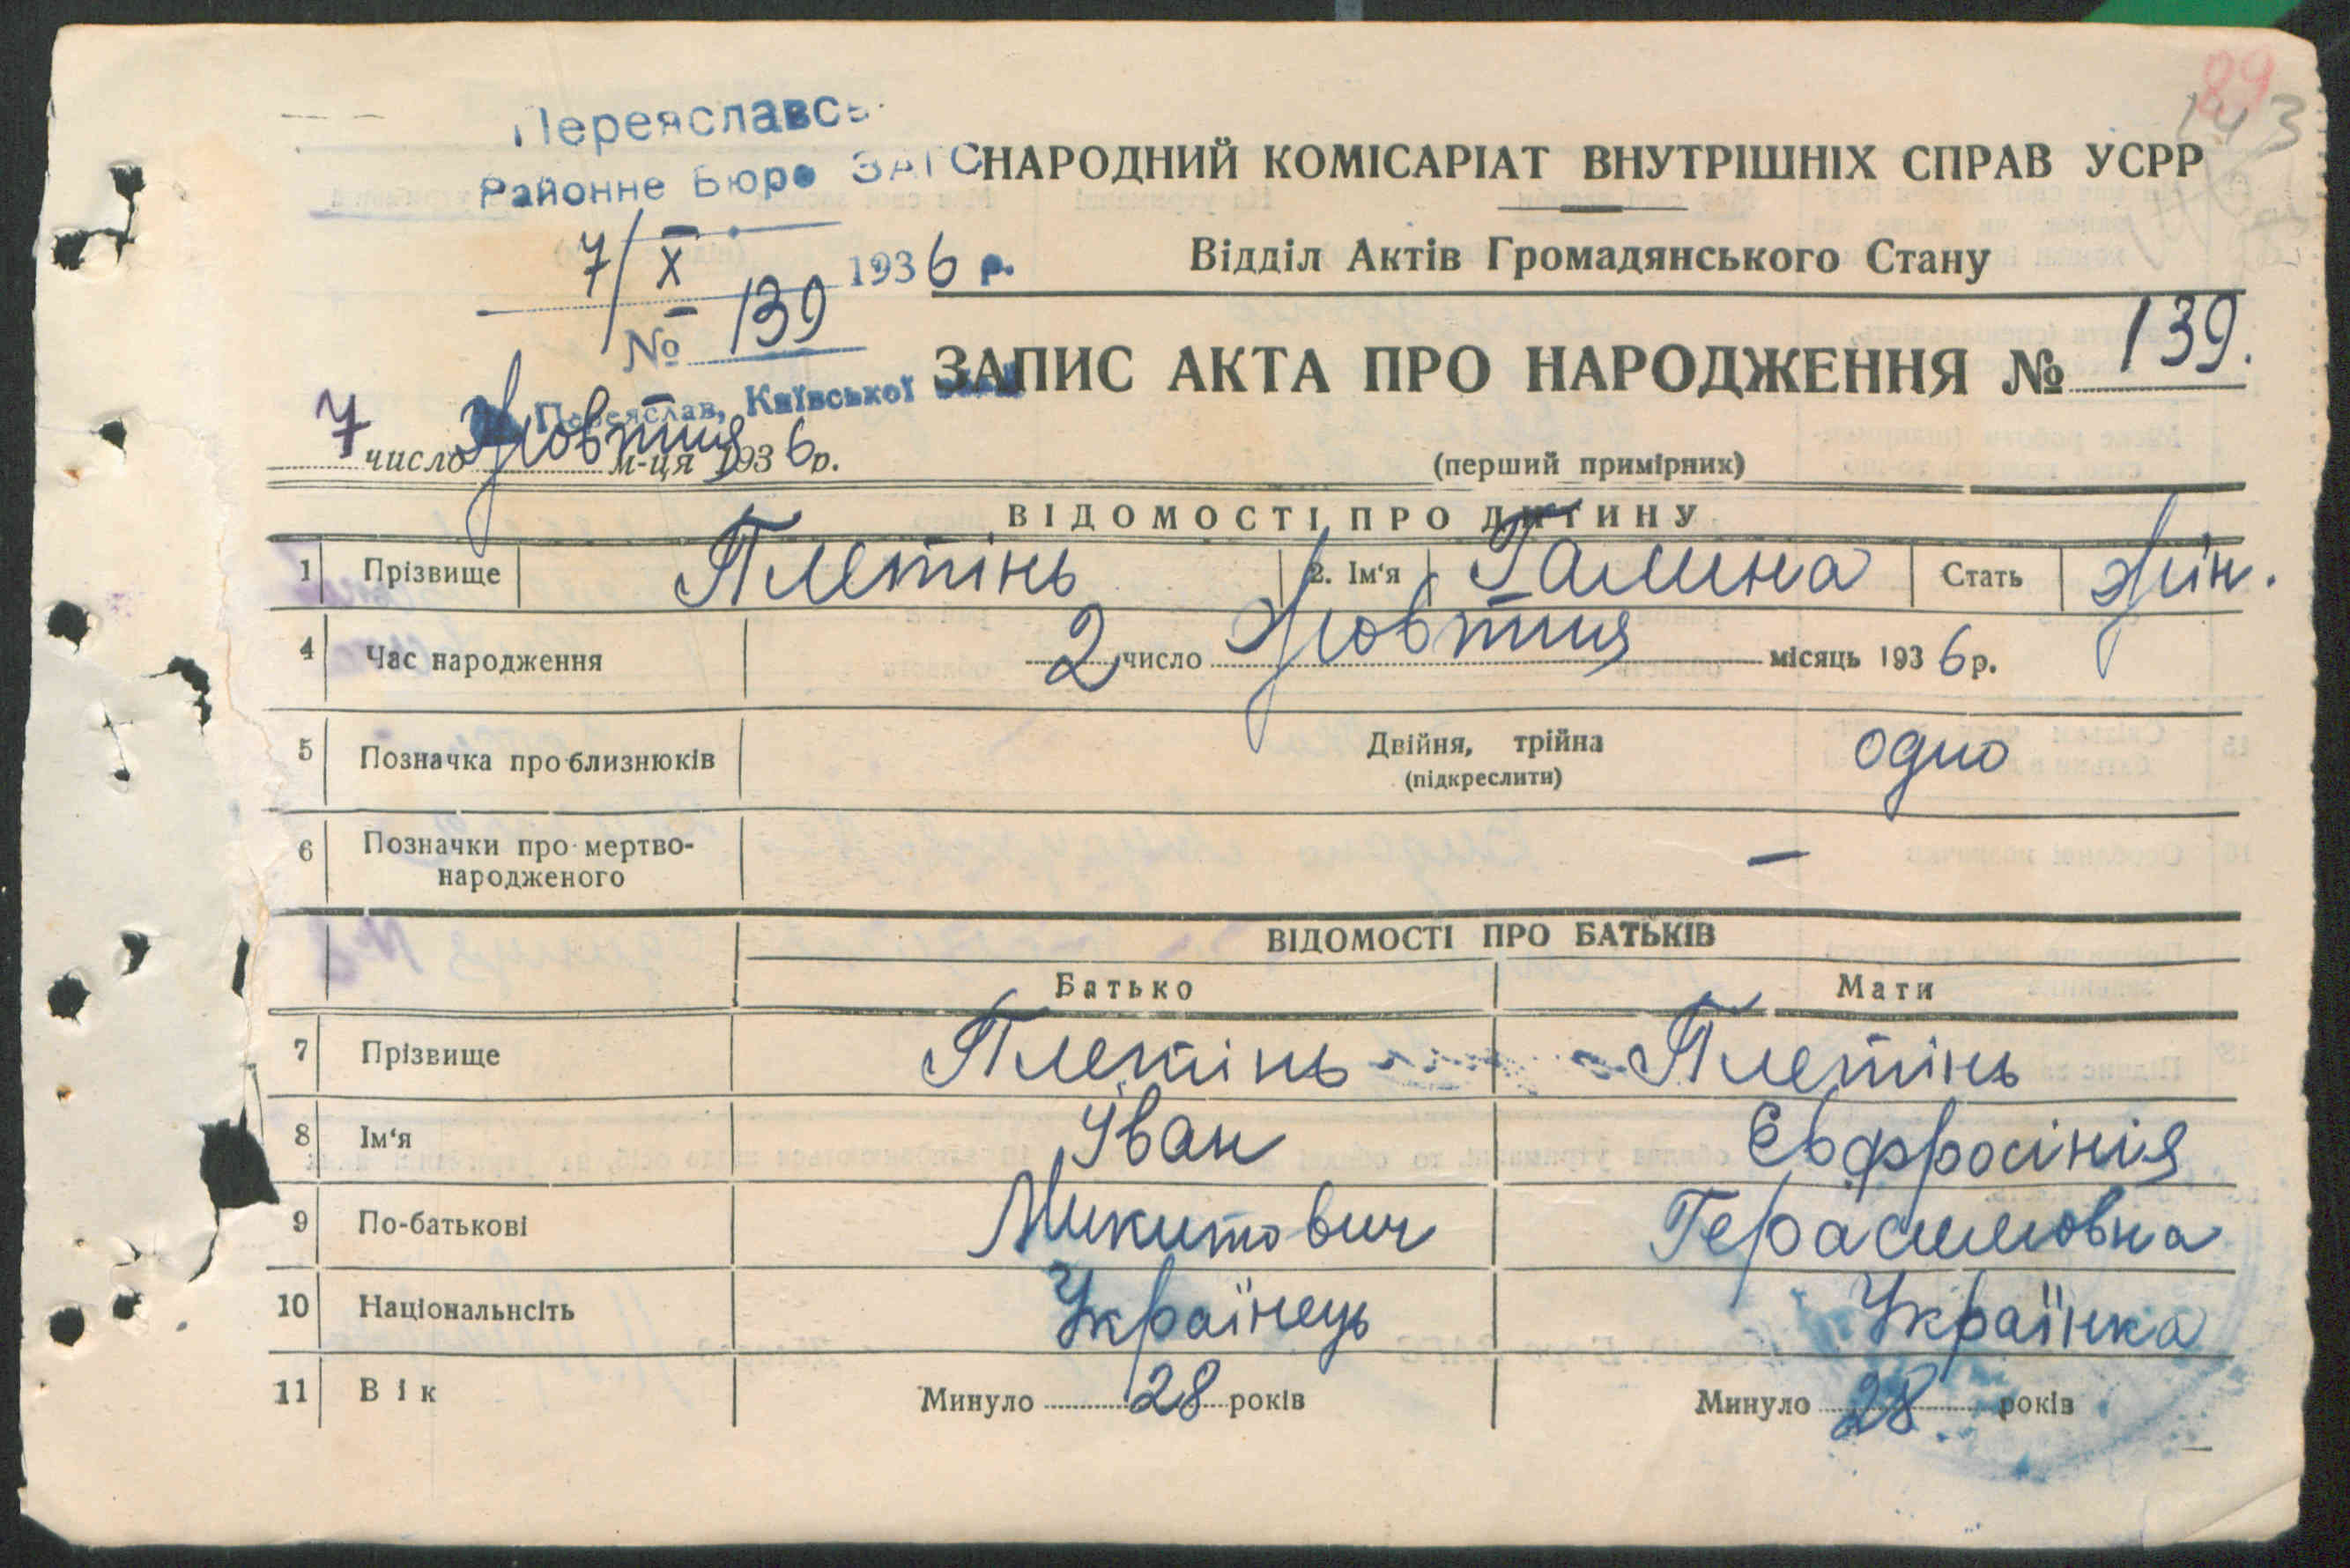 89
143
Переяславсь
Районне Бюро ЗАГС
7/X 1936 р.
№ 139
Переяслав, Київської
НАРОДНИЙ КОМІСАРІАТ ВНУТРІШНІХ СПРАВ УСРР
Відділ Актів Громадянського Стану
ЗАПИС АКТА ПРО НАРОДЖЕННЯ № 139.
7 число Жовтня м-ця 1936р.
(перший примірник)
ВІДОМОСТІ ПРО ДИТИНУ
1 Прізвище Плетінь 2. Ім'я Галина Стать жін.
4 Час народження 2 число Жовтня місяць 1936р.
5 Позначка про близнюків Двійня, трійна одно
(підкреслити)
6 Позначки про мертво-
народженого —
ВІДОМОСТІ ПРО БАТЬКІВ
Батько Мати
7 Прізвище Плетінь Плетінь
8 Ім'я Іван Євфросінія
9 По-батькові Микитович Герасимовна
10 Національнсіть Українець Українка
11 Вік Минуло 28 років Минуло 28 років